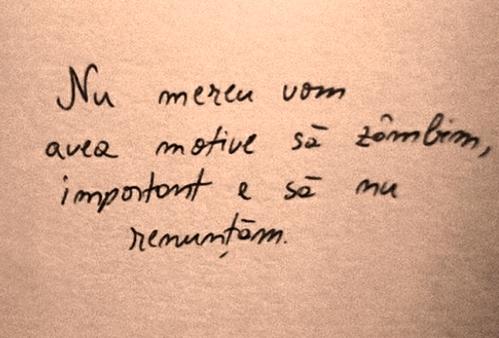 Nu mereu vom
avea motive să zâmbim,
important e să nu
renunțăm.